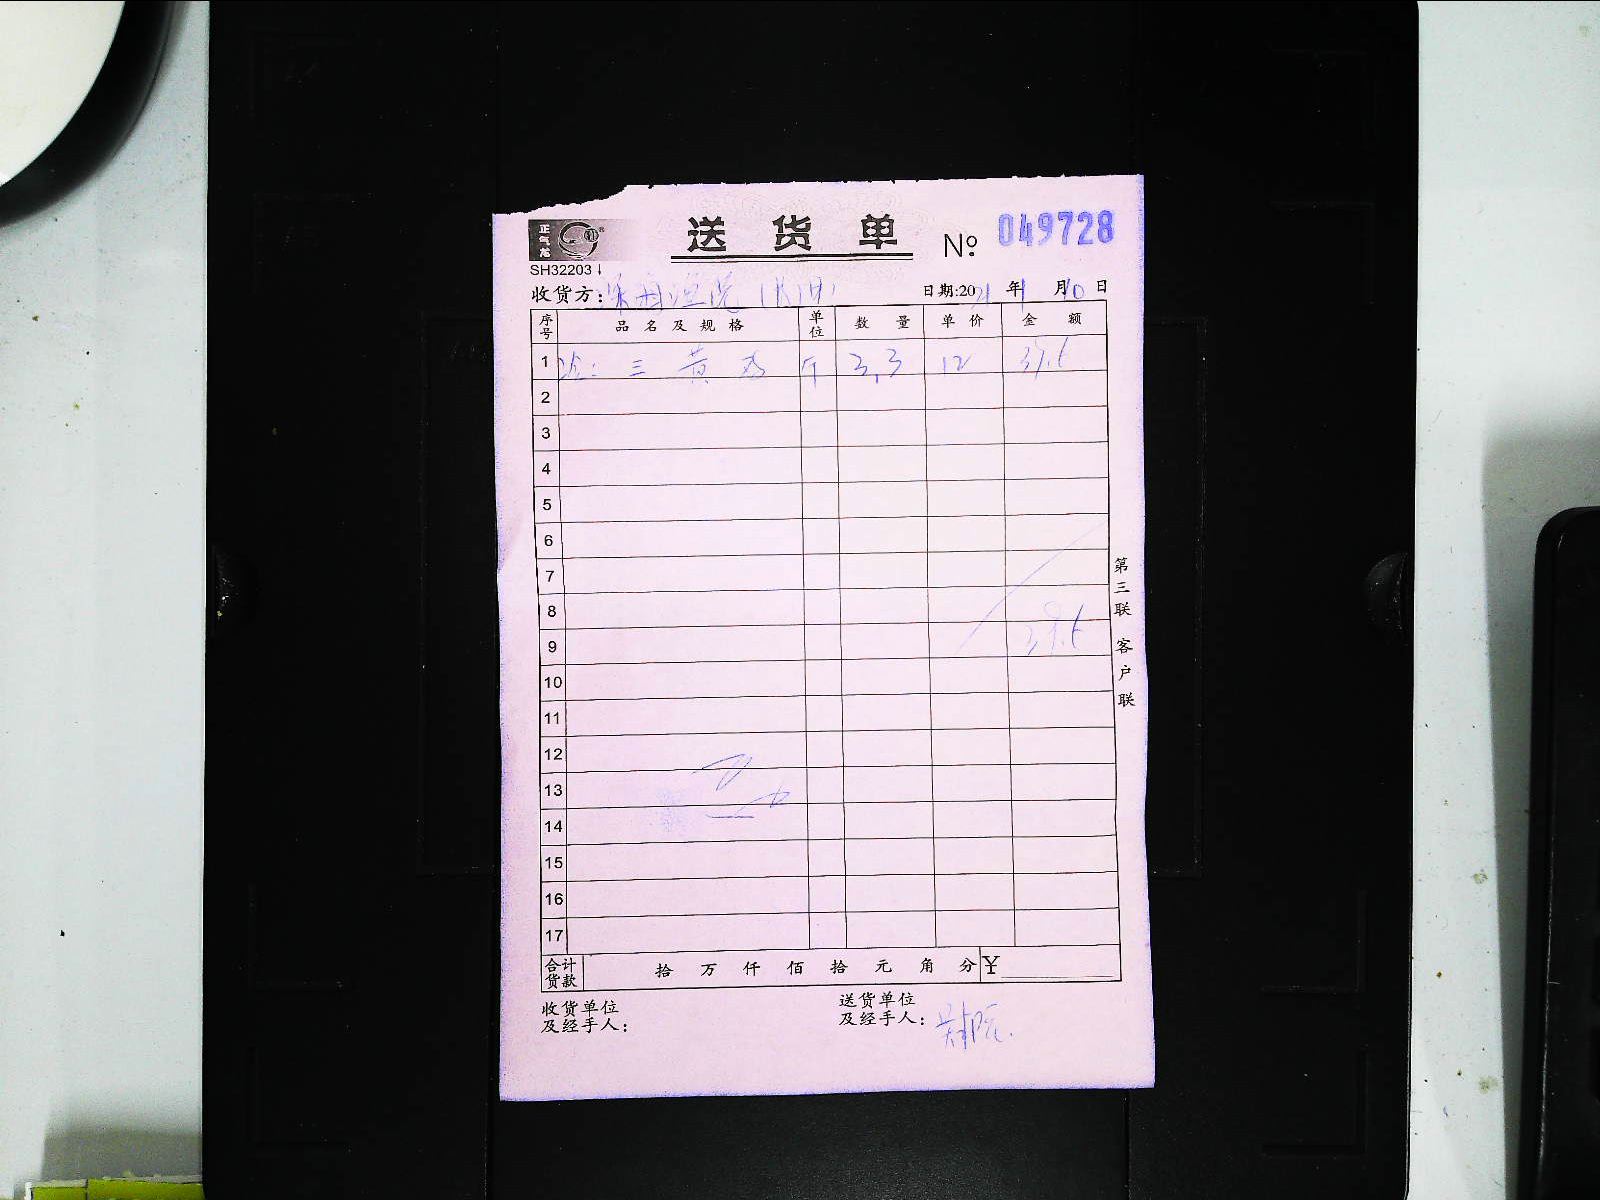 正气龙
送货单 № 049728
SH32203
收货方:
日期:2021年1月10日
序号 品名及规格 单位 数量 单价 金额
1 三黄鸡 斤 3.3 12 39.6
2
3
4
5
6
7
8
9 39.6
10
11
12
13
14
15
16
17
合计货款 拾 万 仟 佰 拾 元 角 分 ¥
收货单位及经手人:
送货单位及经手人:
第三联 客户联